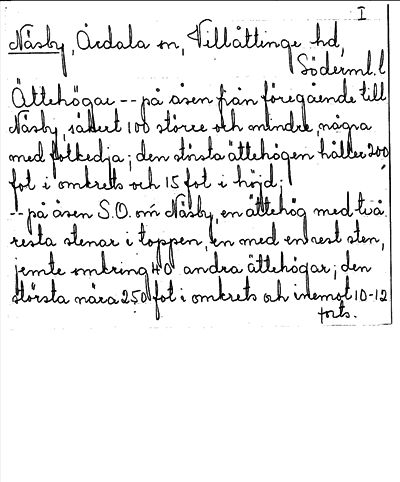 I
Näsby, Årdala sn, Villåttinge hd,
Söderml. l
Ättehögar -- på åsen från föregående till
Näsby, säkert 100 större och mindre, några
med fotkedja; den största ättehögen håller 200
fot i omkrets och 15 fot i höjd;
-- på åsen S.O. om Näsby, en ättehög med två
resta stenar i toppen, en med en rest sten,
jemte omkring 40 andra ättehögar; den
största nära 250 fot i omkrets och inemot 10-12
forts.